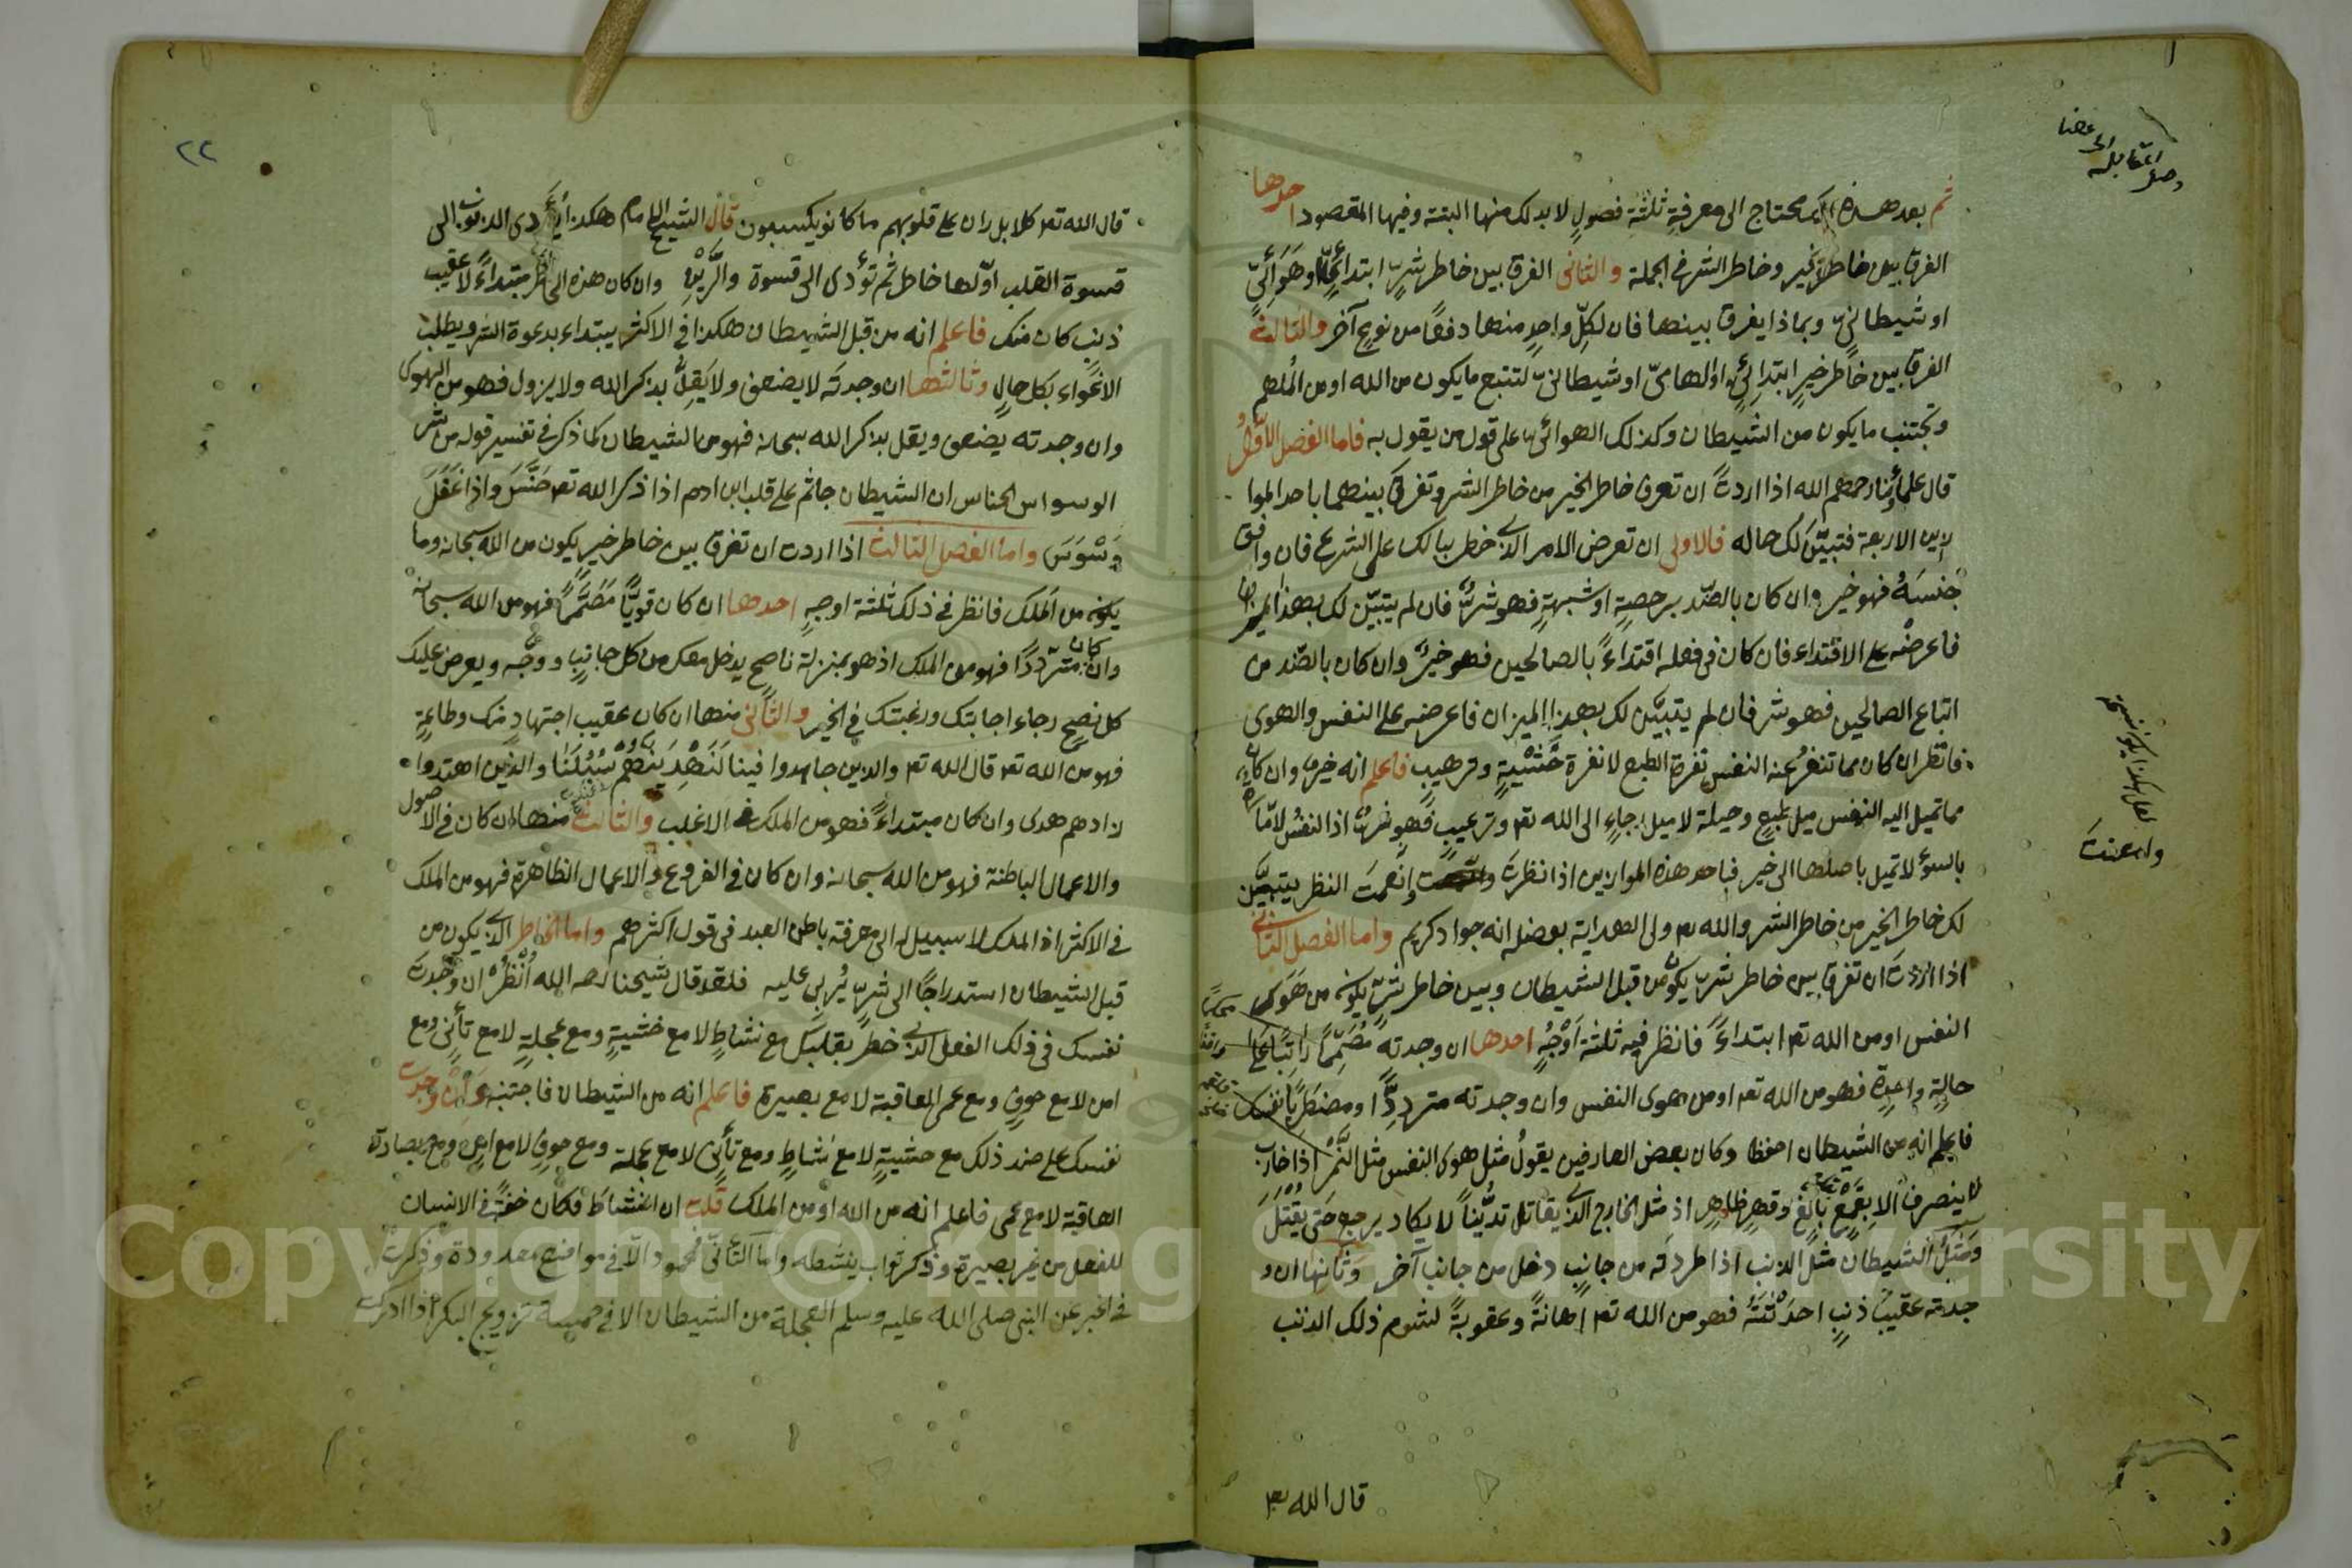 ثم بعد هذه انك محتاج الى معرفة ثلثة فصول لا بد لك منها البتة وفيها المقصود احدها
الفرق بين خاطر الخير وخاطر الشر في الجملة والثانى الفرق بين خاطر شرّ ابتدائىّ او هوائىّ
او شيطانىّ وبماذا يفرق بينها فان لكلّ واحد منها دفعًا من نوع آخر والثالث
الفرق بين خاطر خير ابتدائىّ او الهامىّ او شيطانىّ لتتبع ما يكون من الله او من الملهم
وتجتنب ما يكون من الشيطان وكذلك الهوائى على قول من يقول به فاما الفصل الاوّل
قال علماؤنا رحمهم الله اذا اردت ان تعرف خاطر الخير من خاطر الشر وتفرق بينهما باحد الموا
زين الاربعة فتبيّن لك حاله فالاولى ان تعرض الامر الذى خطر ببالك على الشرع فان وافق
جنسه فهو خير وان كان بالضّد برخصة او شبهة فهو شرّ فان لم يتبيّن لك بهذا الميزان
فاعرضه على الاقتداء فان كان فى فعله اقتداءً بالصالحين فهو خير وان كان بالضّد من
اتباع الصالحين فهو شر فان لم يتبيّن لك بهذا الميزان فاعرضه على النفس والهوى
فانظر ان كان مما تنفر عنه النفس نفرة الطبع لا نفرة خشية وترهيب فاعلم انه خير وان كان
مما تميل اليه النفس ميل طبع وحيلة لا ميل رجاء الى الله تعه وترغيب فهو شرّ اذ النفس لامّارة
بالسوء لا تميل باصلها الى خير فباحد هذه الموازين اذا نظرت وانعمت النظر يتبيّن
لك خاطر الخير من خاطر الشر والله تعه ولى الهداية بفضله انه جواد كريم واما الفصل الثانى
اذا اردت ان تفرق بين خاطر شرّ يكون من قبل الشيطان وبين خاطر شرّ يكون من هوى
النفس او من الله تعه ابتداءً فانظر فيه ثلثة اوجه احدها ان وجدته مصمّمًا راتبًا على
حالة واحدة فهو من الله تعه او من هوى النفس وان وجدته متردّدًا ومضطربًا
فاعلم انه من الشيطان وكان بعض العارفين يقول مثل هوى النفس مثل النّمر اذا حارب
لا ينصرف الا بقمع بالغ وقهر ظاهر او مثل الخارج الذى يقاتل تديّنًا لا يكاد يرجع حتى يقتل
ومثل الشيطان مثل الذئب اذا طردته من جانب دخل من جانب آخر وثانيها ان و
جدته عقيب ذنب احدثته فهو من الله تعه اهانةً وعقوبةً لشوم ذلك الذنب
قال الله تعه
٢٢
قال الله تعه كلا بل ران على قلوبهم ما كانو يكسبون قال الشيخ الامام هكذا يؤدى الذنوب الى
قسوة القلب اوّلها خاطر ثم تؤدى الى قسوة والرّين وان كان هذه الخاطر مبتداءً لا عقيب
ذنب كان منك فاعلم انه من قبل الشيطان هكذا فى الاكثر يبتداء بدعوة الشر ويطلب
الاغواء بكل حال وثالثها ان وجدته لا يضعف ولا يقلّ بذكر الله ولا يزول فهو من الهوى
وان وجدته يضعف ويقل بذكر الله سبحانه فهو من الشيطان كما ذكر فى تفسير قوله من شر
الوسواس الخناس ان الشيطان جاثم على قلب ابن ادم اذا ذكر الله تعه خنّس واذا غفل
وسوس واما الفصل الثالث اذا اردت ان تفرق بين خاطر خير يكون من الله سبحانه وما
يكون من الملك فانظر فى ذلك ثلثة اوجه احدها ان كان قويًّا مصمّمًا فهو من الله سبحانه
وان كان متردّدًا فهو من الملك اذ هو بمنزلة ناصح يدخل معك من كل جانب ووجه ويعرض عليك
كل نصح رجاء اجابتك ورغبتك فى الخير والثانى منها ان كان عقيب اجتهاد منك وطاعة
فهو من الله تعه قال الله تعه والذين جاهدوا فينا لنهدينهم سبلنا والذين اهتدوا
زادهم هدى وان كان مبتداءً فهو من الملك فى الاغلب والثالث منها ان كان فى الاصول
والاعمال الباطنة فهو من الله سبحانه وان كان فى الفروع والاعمال الظاهرة فهو من الملك
فى الاكثر اذ الملك لا سبيل له الى معرفة باطن العبد فى قول اكثرهم واما الخاطر الذى يكون من
قبل الشيطان استدراجًا الى شرّ يربى عليه فلقد قال شيخنا رحمه الله انظر ان وجدت
نفسك فى ذلك الفعل الذى خطر بقلبك مع نشاط لا مع خشية ومع عجلة لا مع تأنى ومع
امن لا مع خوف ومع عمى العاقبة لا مع بصيرة فاعلم انه من الشيطان فاجتنبه وان وجدت
نفسك على ضد ذلك مع خشية لا مع نشاط ومع تأنى لا مع عجلة ومع خوف لا مع امن ومع بصارة
العاقبة لا مع عمى فاعلم انه من الله او من الملك قلت ان النشاط فكان خفة فى الانسان
للفعل من غير بصيرة وذكر ثواب ينشطه واما التأنى فمحمود الّا فى مواضع معدودة وذكرت
فى الخبر عن النبى صلى الله عليه وسلم العجلة من الشيطان الا فى خمسة تزويج البكر اذا ادركت